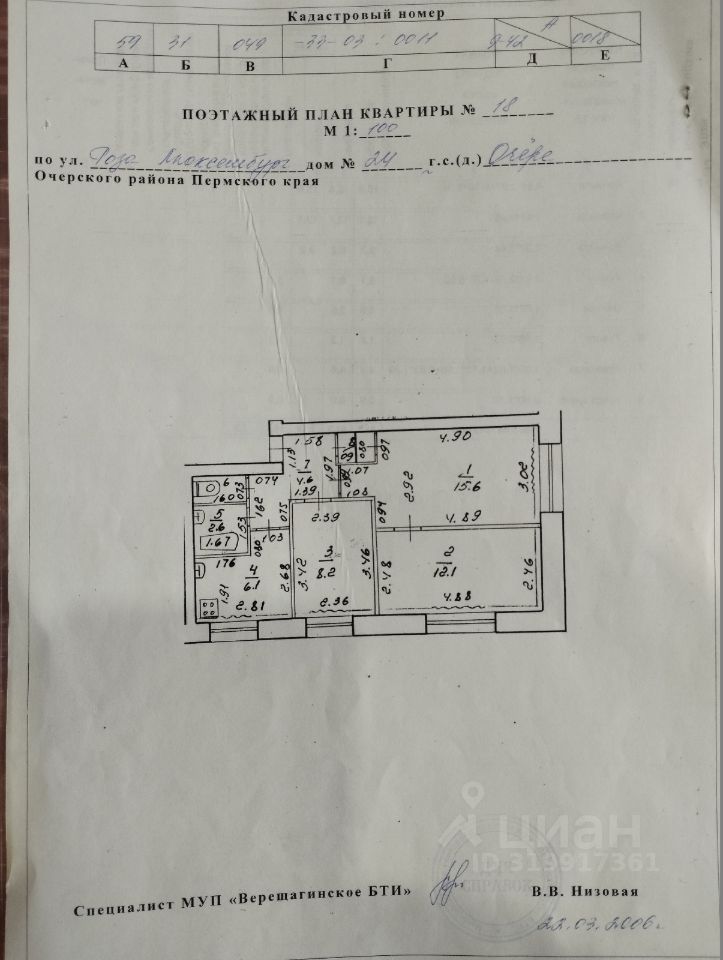 Кадастровый номер
59 31 049 -33-03:0011 9-42 А 0018
А Б В Г Д Е
ПОЭТАЖНЫЙ ПЛАН КВАРТИРЫ № 18
М 1: 100
по ул. Роза Люксембург дом № 24 г.с.(д.) Очёре
Очерского района Пермского края
1.58 4.90
1.13 7 4.6 1.97 0.80 0.97 1.07
6 1.60 0.73 0.74 1.39 1.08 2.92 1 15.6 3.02
5 2.6 1.53 1.62 0.75 2.39 0.94 4.89
1.67 1.03
1.76 0.80 3 8.2 2 12.1
4 6.1 2.68 3.42 3.46 2.48 2.46
1.91 2.81 2.36 4.88
циан
ID 319917361
СПРАВОК
Специалист МУП «Верещагинское БТИ» В.В. Низовая
22.03.2006г.